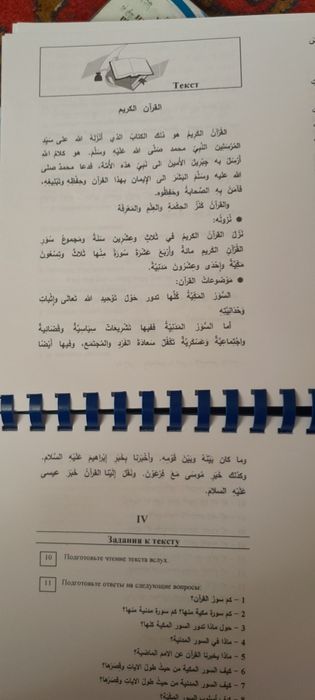 Текст
القرآن الكريم
القُرْآن الكَريمُ هو ذلكَ الكتابُ الذي أَنْزَلَهُ الله على سَيِّدِ
المُرْسَلينَ النَّبِيِّ محمد صلّى الله عَلَيْهِ وسَلَّمَ. هو كَلامُ اللهِ
أرْسَلَ به جِبْريلَ الأمينَ الى نَبِيِّ هذه الأمَّة. فَدعا محمدٌ صلى
الله عليه وسلم البَشَرَ الى الإيمان بهذا القُرآن وحِفْظِه وتَبْليغِه،
فآمَنَ بِه الصَّحابةُ وحَفِظُوه.
والقُرْآنُ كَنْزُ الحِكْمَةِ والعِلْمِ والمَعْرِفَة
● نُزولُه:
نَزَلَ القُرْآن الكريمُ في ثَلاثٍ وعشرين سَنَةً ومَجموعُ سُوَرِ
القُرْآنِ الكريمِ مائةٌ وأرْبَعَ عَشْرَةَ سُورةً مِنْها ثَلاثٌ وتِسْعُونَ
مَكِّيَّةً وإحْدى وعِشْرُونَ مَدَنِيَّةً.
● مَوْضوعاتُ القُرْآن:
السُّوَرُ المَكِّيَّةُ كُلُّها تَدورُ حَوْلَ تَوْحيدِ اللهِ تعالى وإثباتِ
وَحْدَانِيَّتِهِ
أما السُّوَرُ المَدَنِيَّةُ فَفِيها تَشْريعاتٌ سِيَاسِيَّةٌ وقَضائِيةٌ
واجْتِماعِيَّةٌ وعَسْكَرِيَّةٌ تَكْفُلُ سَعادَةَ الفَرْدِ والمُجْتَمَعِ، وفيها أيْضًا
وما كان بَيْنَهُ وبَيْنَ قَوْمِه. وأخْبَرَنا بِخَبَرِ إبْراهيمَ عَلَيْهِ السَّلام.
وكَذلكَ خَبَرِ مُوسَى مَعَ فِرْعَوْنَ. ونَقَلَ إلَيْنا القُرآنُ خَبَرَ عيسى
عَلَيْهِ السلام.
IV
Задания к тексту
10 Подготовьте чтение текста вслух.
11 Подготовьте ответы на следующие вопросы:
1 – كم سورَ القرآن؟
2 – كم سورة مكية منها؟ كم سورة مدنية منها؟
3 – حول ماذا تدور السور المكية كلها؟
4 – ماذا في السور المدنية؟
5 – ماذا يخبرنا القرآن عن الامم الماضية؟
6 – كيف السور المكية من حيث طول الآيات وقصرها؟
7 – كيف السور المدنية من حيث طول الآيات وقصرها؟